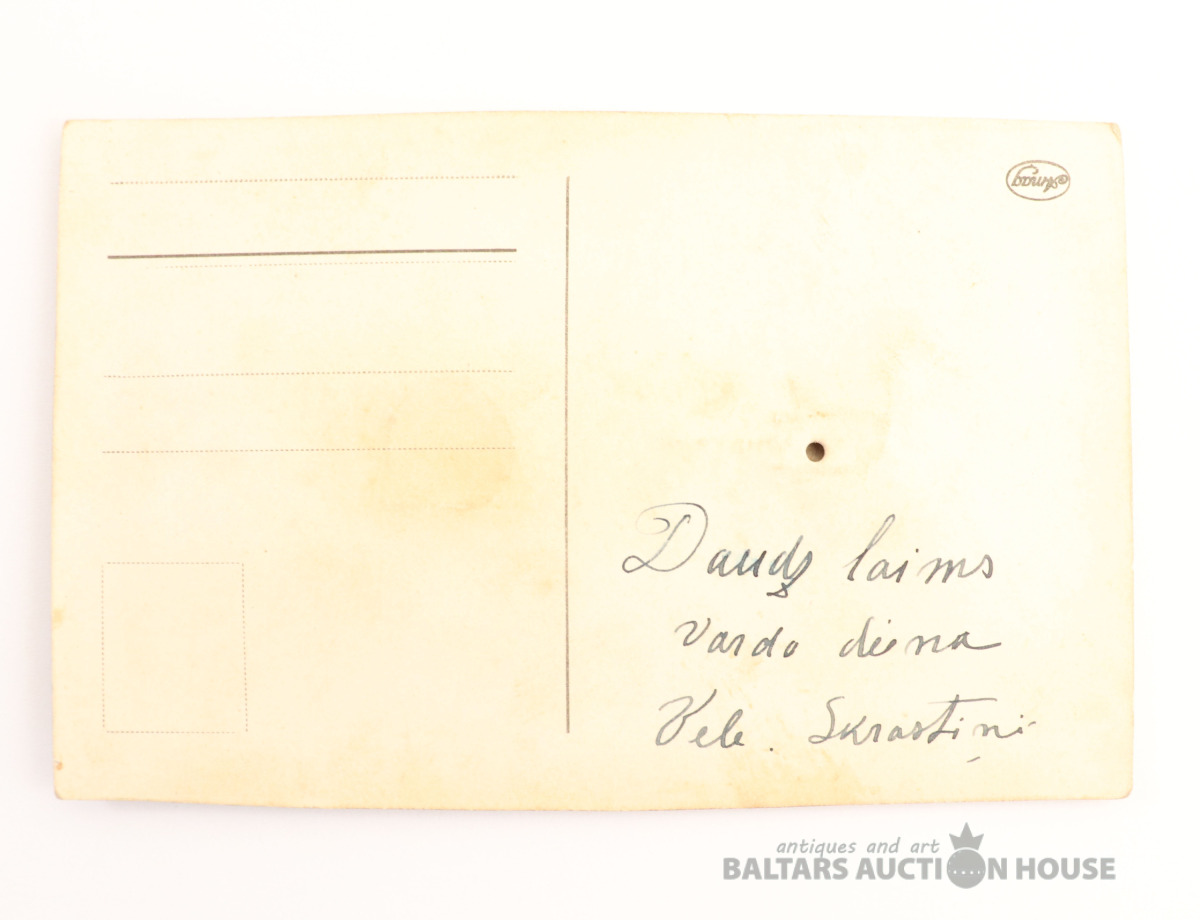 Amag
Daudz laims
Varda diena
Vele. Skrastiņi
antiques and art
BALTARS AUCTION HOUSE